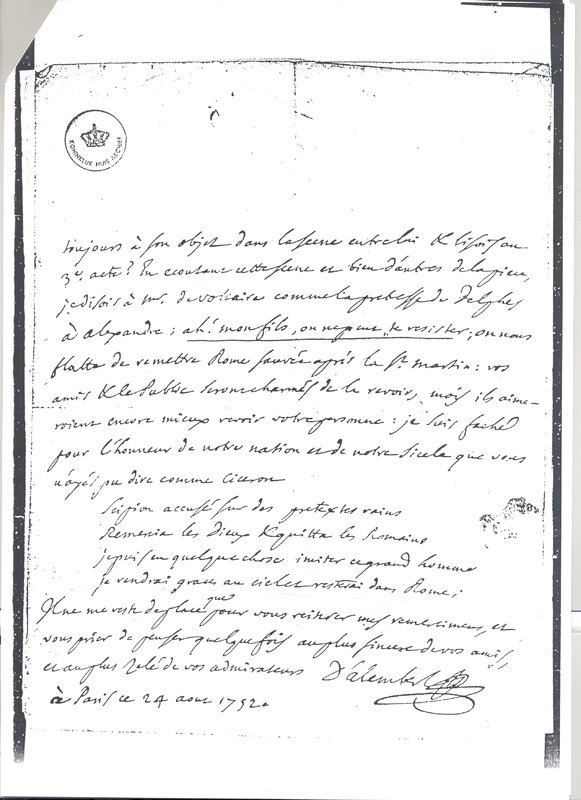 KONINKLIJK HUIS ARCHIEF
toujours à son objet dans la scene entre lui & lisois au
3e. acte? En ecoutant cette scene et bien d'autres de la piece,
je disois à mr. de voltaire comme la pretresse de Delphes
à alexandre; ah! mon fils, on ne peut te resister; on nous
flatte de remettre Rome sauvée après la St. martin: vos
amis & le Public seront charmés de la revoir, mais ils aime-
roient encore mieux revoir votre personne: je suis faché
pour l'honneur de notre nation et de notre siecle que vous
n'ayés pu dire comme Ciceron
Scipion accusé sur des pretextes vains
Remercia les Dieux & quitta les Romains
je puis en quelque chose imiter ce grand homme
je rendrai graces au ciel et resterai dans Rome;
Il ne me reste de place que pour vous reiterer mes remercimens, et
vous prier de penser quelquefois au plus sincere de vos amis,
et au plus zelé de vos admirateurs D'alembert
à Paris ce 24 aout 1752.